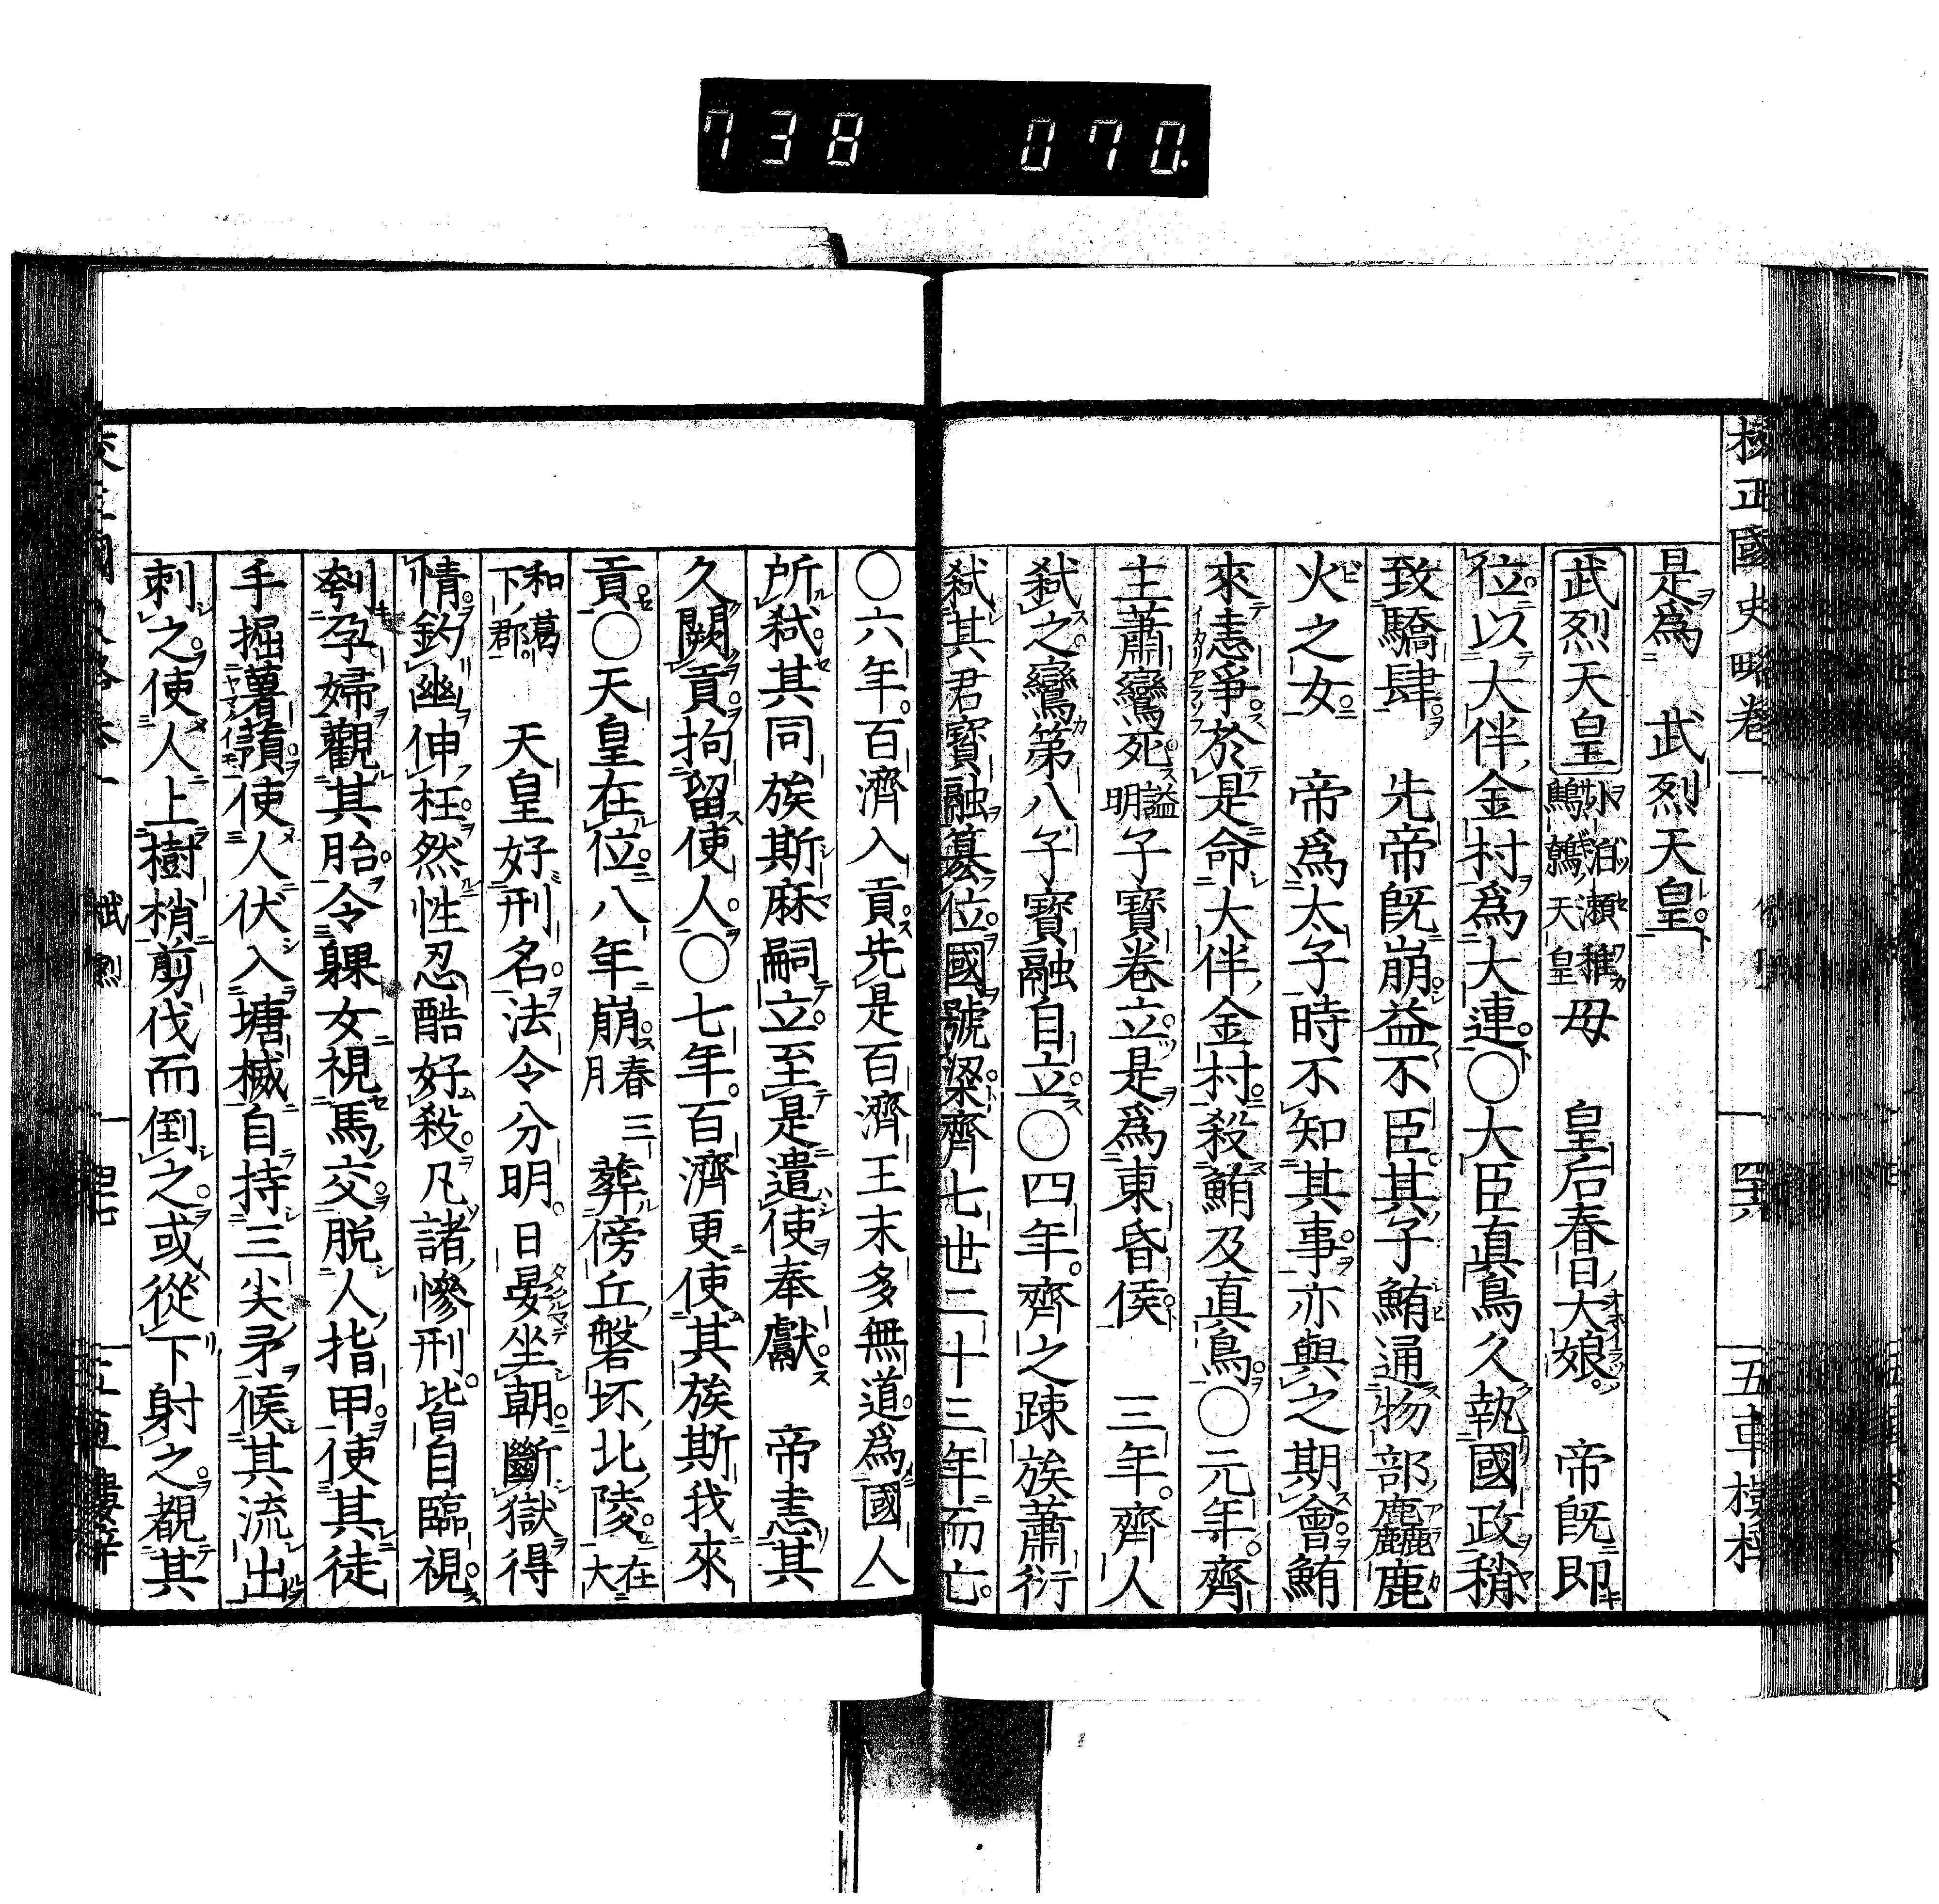 738 070
校正國史略卷一 四十六 五車樓梓
是爲 武烈天皇
武烈天皇 小泊瀬稚鷦鷯天皇 母 皇后春日大娘 帝既即
位以大伴金村爲大連○大臣真鳥久執國政稍
致驕肆 先帝既崩益不臣其子鮪通物部麤鹿
火之女 帝爲太子時不知其事亦與之期會鮪
來恚爭於是命大伴金村殺鮪及真鳥○元年齊
主蕭鸞死謚明子寶卷立是爲東昏侯 三年齊人
弑之鸞第八子寶融自立○四年齊之踈族蕭衍
弑其君寶融簒位國號梁齊七世二十三年而亡
○六年百濟入貢先是百濟王末多無道爲國人
所弑其同族斯麻嗣立至是遣使奉獻 帝恚其
久闕貢拘留使人○七年百濟更使其族斯我來
貢○天皇在位八年崩春三月 葬傍丘磐坏北陵在大
和葛下郡 天皇好刑名法令分明日晏坐朝斷獄得
情釣幽伸枉然性忍酷好殺凡諸慘刑皆自臨視
刳孕婦觀其胎令躶女視馬交脱人指甲使其徒
手掘薯蕷使人伏入塘槭自持三尖矛候其流出
刺之使人上樹梢剪伐而倒之或從下射之覩其
武烈